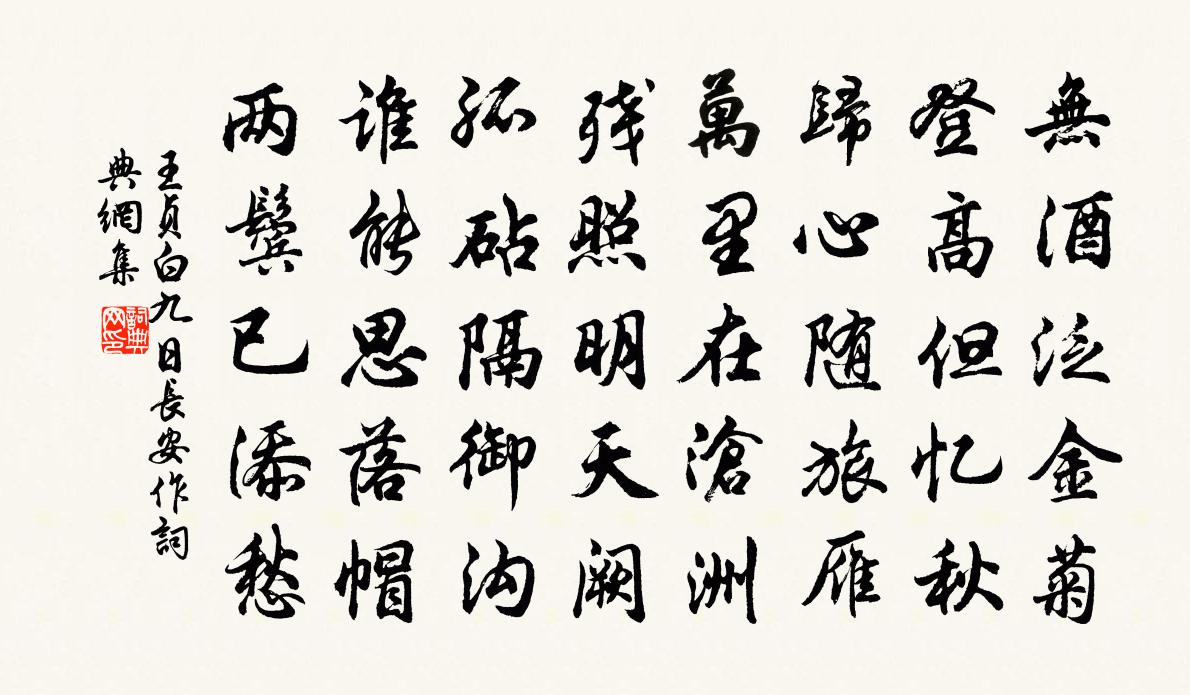 無酒泛金菊
登高但忆秋
歸心随旅雁
萬里在滄洲
残照明天阙
孤砧隔御沟
谁能思落帽
两鬓已添愁
王贞白九日長安作詞
典網集
詞典
网印